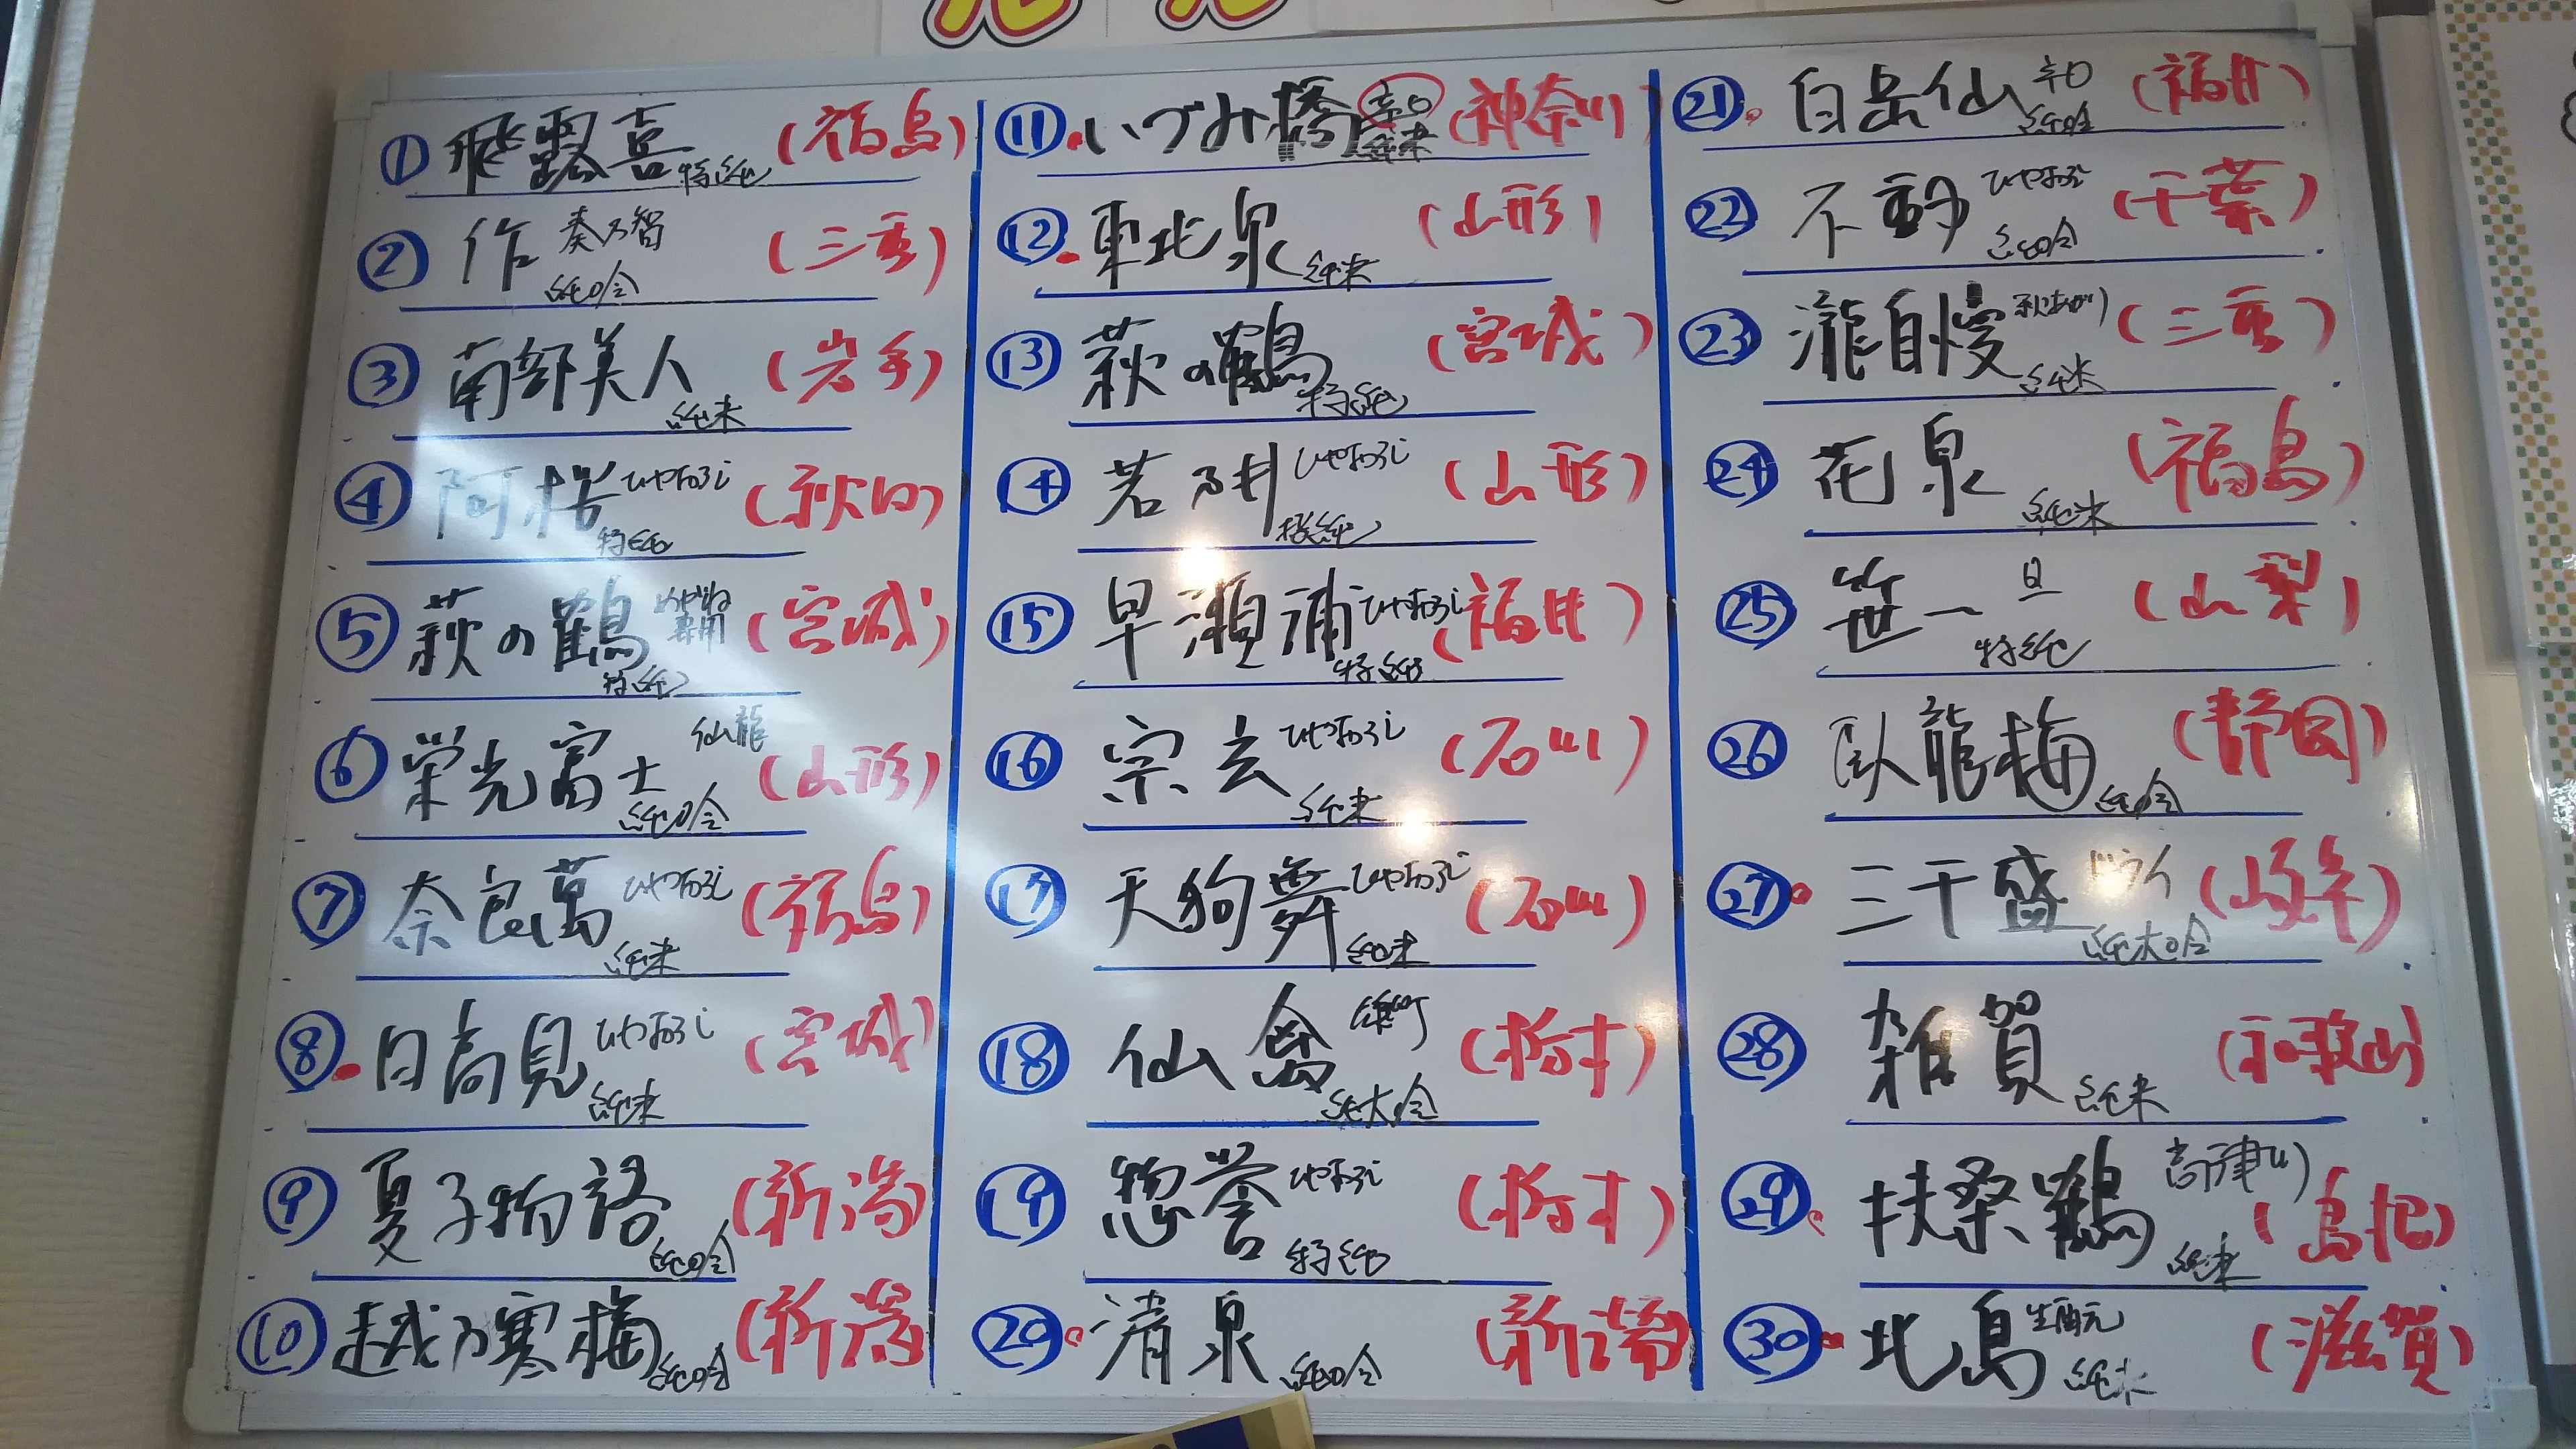 ① 飛露喜 特純 (福島)
② 作 奏乃智 純吟 (三重)
③ 南部美人 純米 (岩手)
④ 阿櫻 ひやおろし 特純 (秋田)
⑤ 萩の鶴 めがね専用 特純 (宮城)
⑥ 栄光冨士 仙龍 純吟 (山形)
⑦ 奈良萬 ひやおろし 純米 (福島)
⑧ 日高見 ひやおろし 純米 (宮城)
⑨ 夏子物語 純吟 (新潟)
⑩ 越乃寒梅 純吟 (新潟)
⑪ いづみ橋 辛口 純米 (神奈川)
⑫ 東北泉 純米 (山形)
⑬ 萩の鶴 特純 (宮城)
⑭ 若乃井 ひやおろし 特純 (山形)
⑮ 早瀬浦 ひやおろし 特純 (福井)
⑯ 宗玄 ひやおろし 純米 (石川)
⑰ 天狗舞 ひやおろし 純米 (石川)
⑱ 仙禽 雄町 純大吟 (栃木)
⑲ 惣誉 ひやおろし 特純 (栃木)
⑳ 清泉 純吟 (新潟)
㉑ 白岳仙 辛口 純吟 (福井)
㉒ 不動 ひやおろし 純吟 (千葉)
㉓ 瀧自慢 秋あがり 純米 (三重)
㉔ 花泉 純米 (福島)
㉕ 笹一 旦 特純 (山梨)
㉖ 臥龍梅 純吟 (静岡)
㉗ 三千盛 純大吟 (岐阜)
㉘ 雑賀 純米 (和歌山)
㉙ 扶桑鶴 高津川 純米 (島根)
㉚ 北島 生酛 純米 (滋賀)